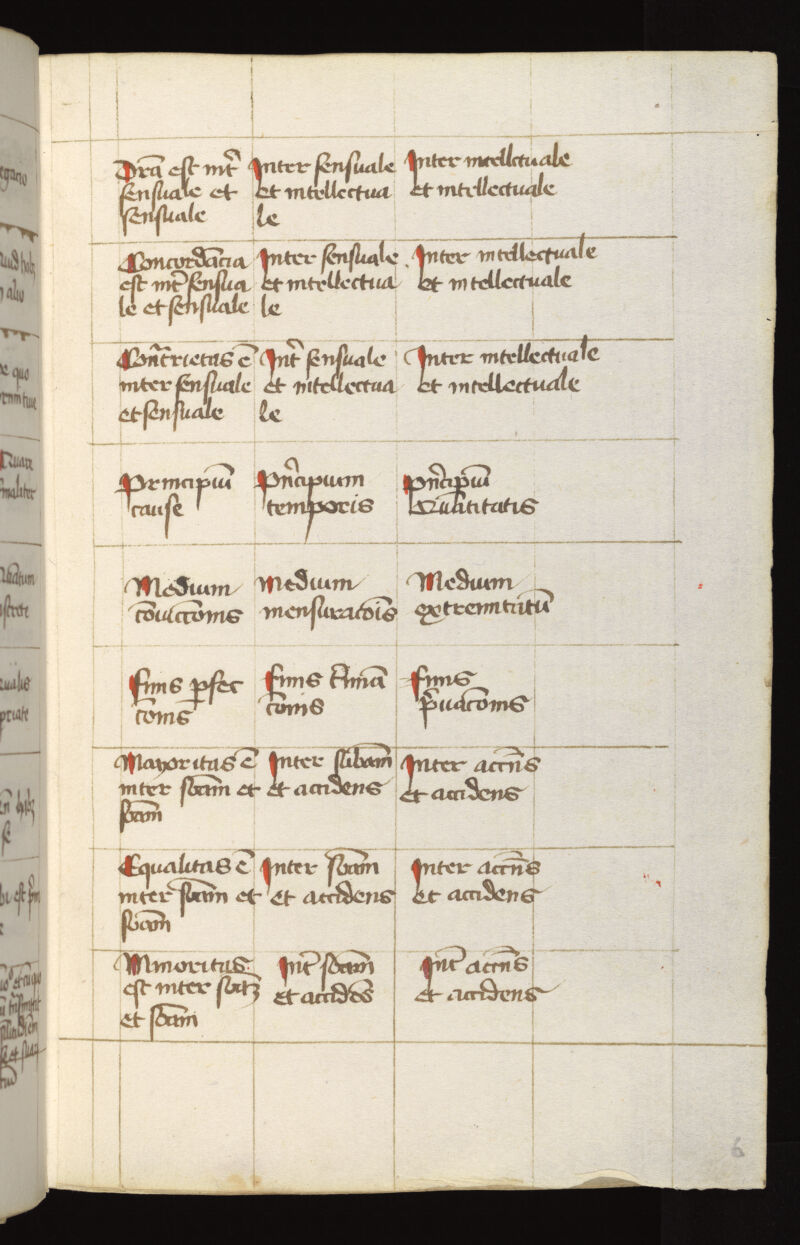 Dr̄a est int̄
sensuale et
sensuale
Inter sensuale
et intellectua
le
Inter intellectuale
et intellectuale
Concordācia
est int̄ sensua
le et sensuale
Inter sensuale
et intellectua
le
Inter intellectuale
et intellectuale
Cont̄rietas ē
inter sensuale
et sensuale
Int̄ sensuale
et intellectua
le
Inter intellectuale
et intellectuale
Principiū
cause
Pn̄cipium
temporis
Pn̄cipiū
Medium
Medium
mensuratōis
Medium
extremitatū
Finis ꝑfec
tōnis
Finis t̄mīa
tōnis
Finis
p̄uatōnis
Mayoritas ē
inter sb̄am et
sb̄am
Inter sub̄am
et accidens
Inter accn̄s
et accidens
Equalitas ē
inter sb̄am et
sb̄am
Inter sb̄am
et accidens
Inter accn̄s
et accidens
Minoritas
est inter
et sb̄am
Int̄ sb̄am
et accidēs
Int̄ accn̄s
et accidens
6